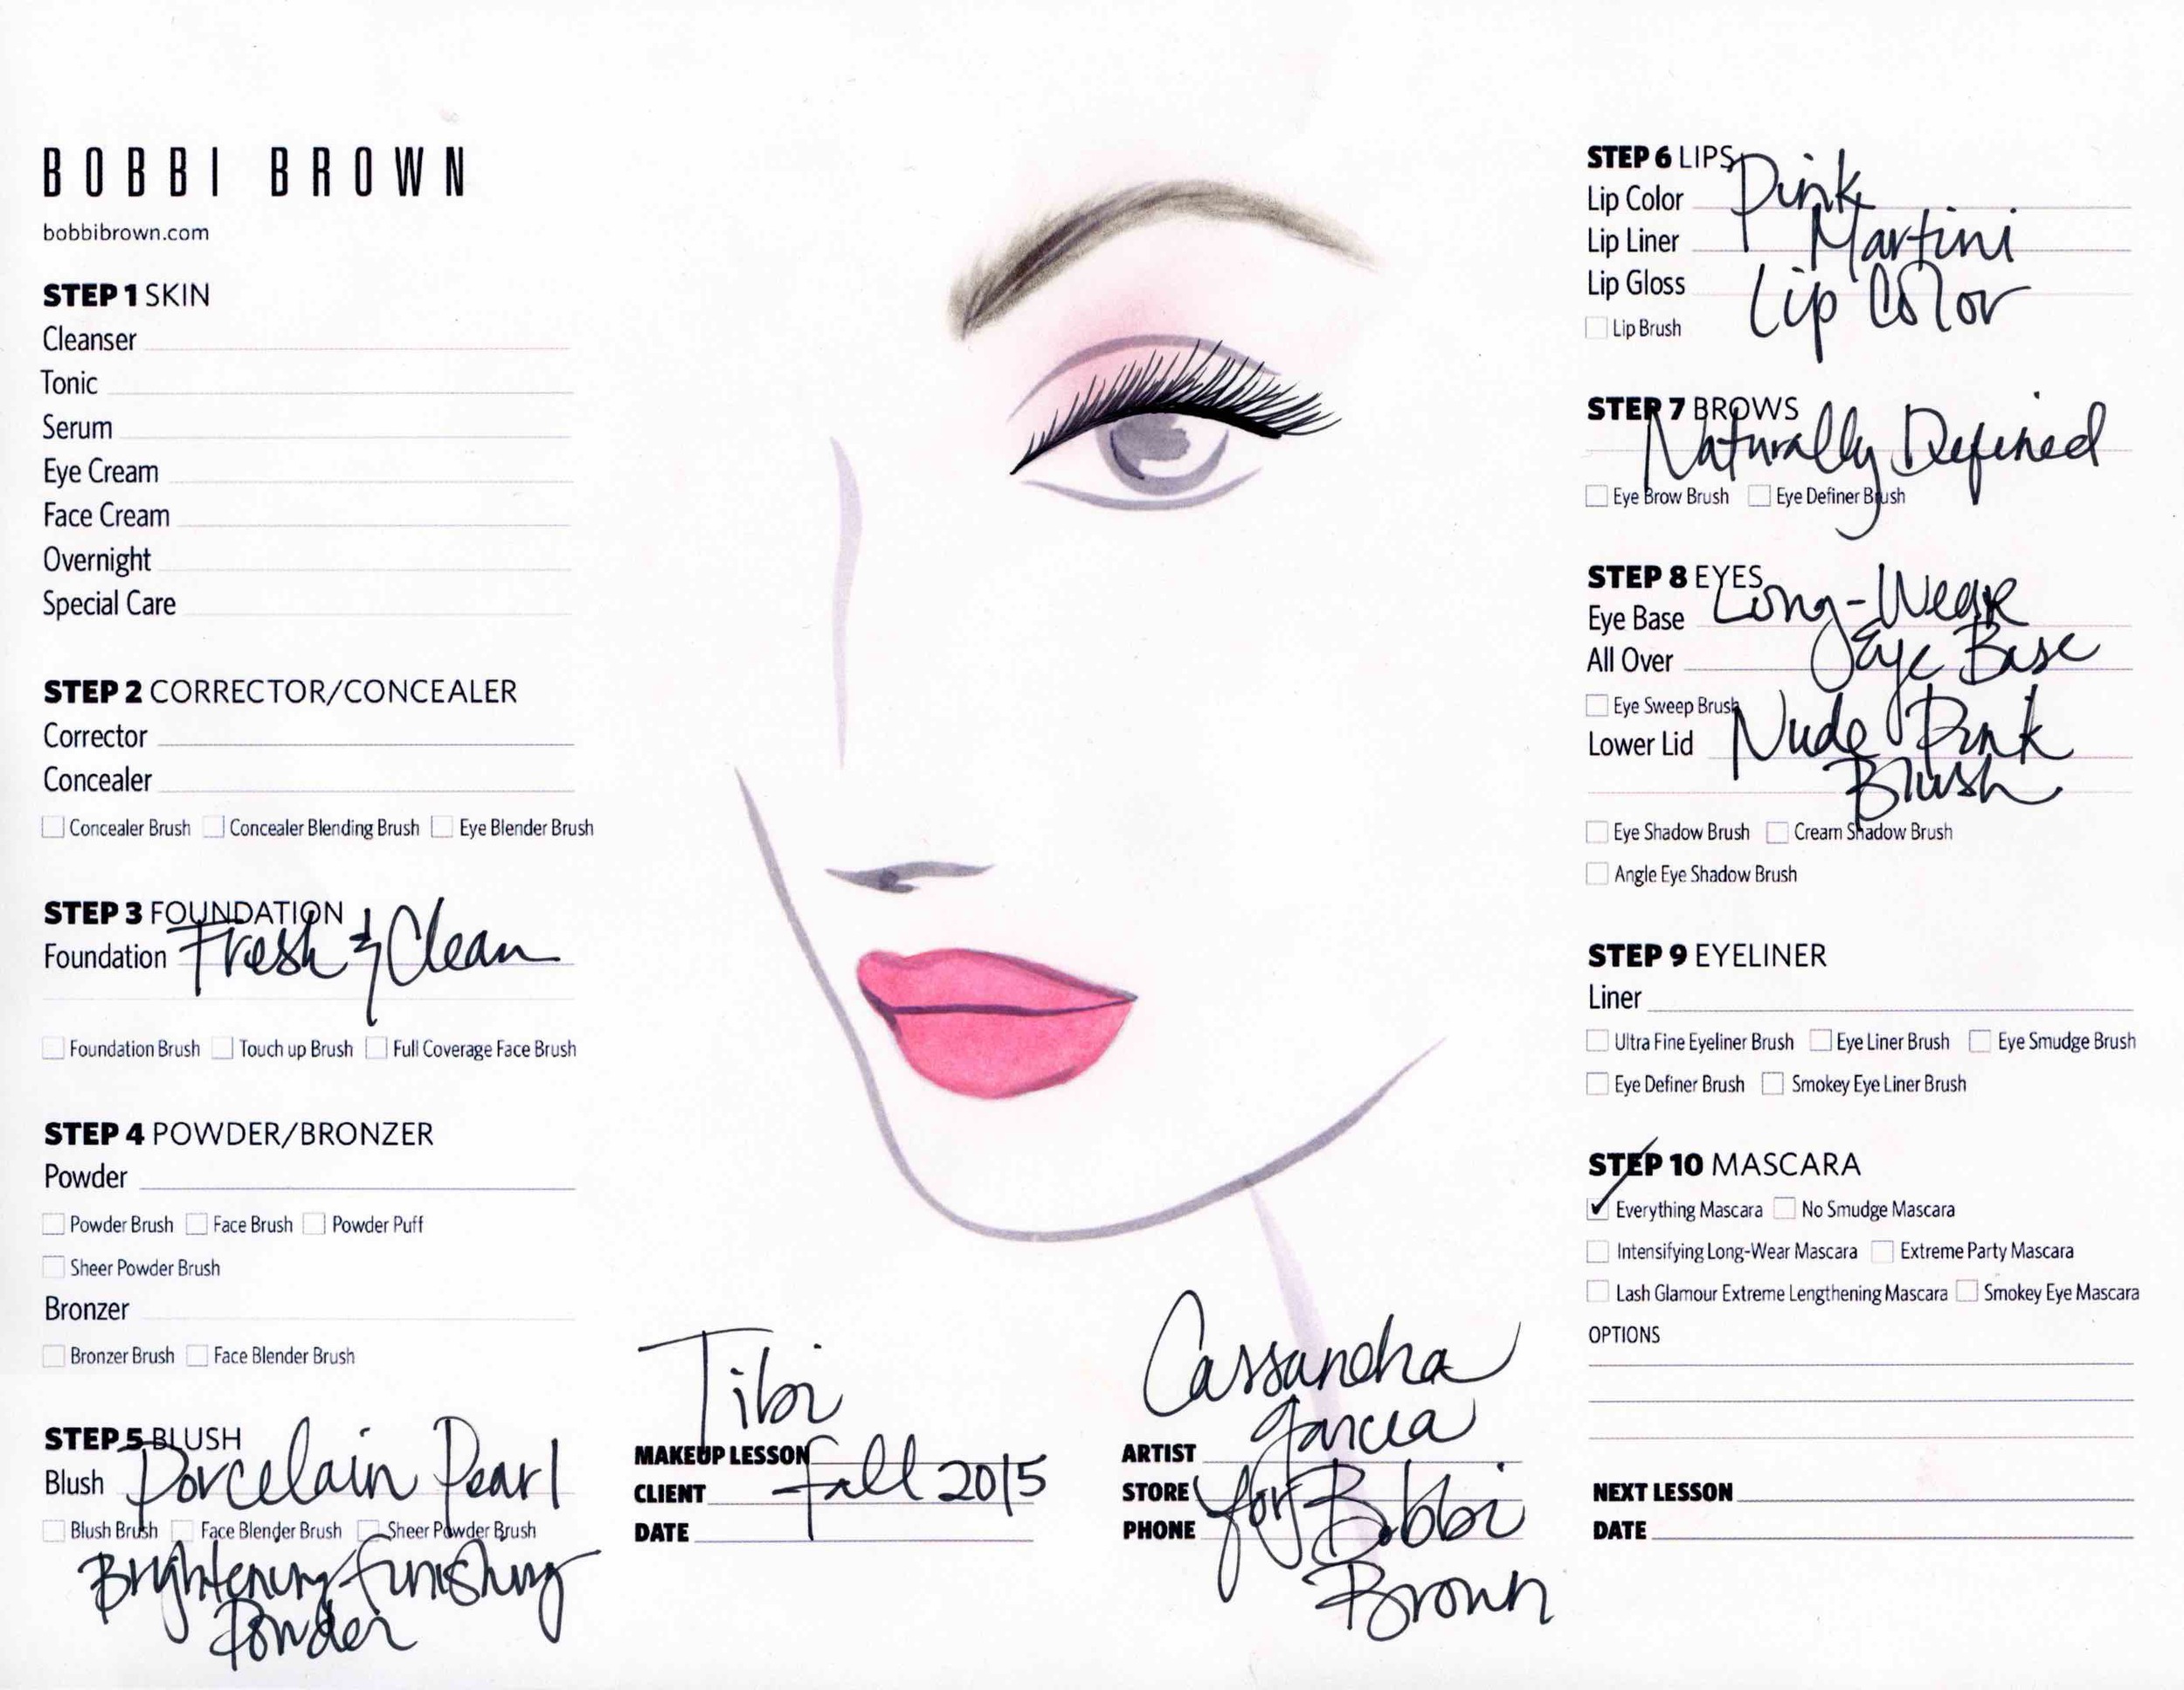 BOBBI BROWN
bobbibrown.com
STEP 1 SKIN
Cleanser
Tonic
Serum
Eye Cream
Face Cream
Overnight
Special Care
STEP 2 CORRECTOR/CONCEALER
Corrector
Concealer
Concealer Brush Concealer Blending Brush Eye Blender Brush
STEP 3 FOUNDATION
Foundation Fresh & Clean
Foundation Brush Touch up Brush Full Coverage Face Brush
STEP 4 POWDER/BRONZER
Powder
Powder Brush Face Brush Powder Puff
Sheer Powder Brush
Bronzer
Bronzer Brush Face Blender Brush
STEP 5 BLUSH
Blush Porcelain Pearl
Blush Brush Face Blender Brush Sheer Powder Brush
Brightening Finishing
Powder
Tibi
MAKEUP LESSON
CLIENT Fall 2015
DATE
Cassandra
Garcia
ARTIST
STORE for Bobbi
PHONE
Brown
STEP 6 LIPS
Lip Color Pink
Lip Liner Martini
Lip Gloss Lip Color
Lip Brush
STEP 7 BROWS
Naturally Defined
Eye Brow Brush Eye Definer Brush
STEP 8 EYES
Eye Base Long-Wear
All Over Eye Base
Eye Sweep Brush
Lower Lid Nude Pink
Blush
Eye Shadow Brush Cream Shadow Brush
Angle Eye Shadow Brush
STEP 9 EYELINER
Liner
Ultra Fine Eyeliner Brush Eye Liner Brush Eye Smudge Brush
Eye Definer Brush Smokey Eye Liner Brush
STEP 10 MASCARA
Everything Mascara No Smudge Mascara
Intensifying Long-Wear Mascara Extreme Party Mascara
Lash Glamour Extreme Lengthening Mascara Smokey Eye Mascara
OPTIONS
NEXT LESSON
DATE